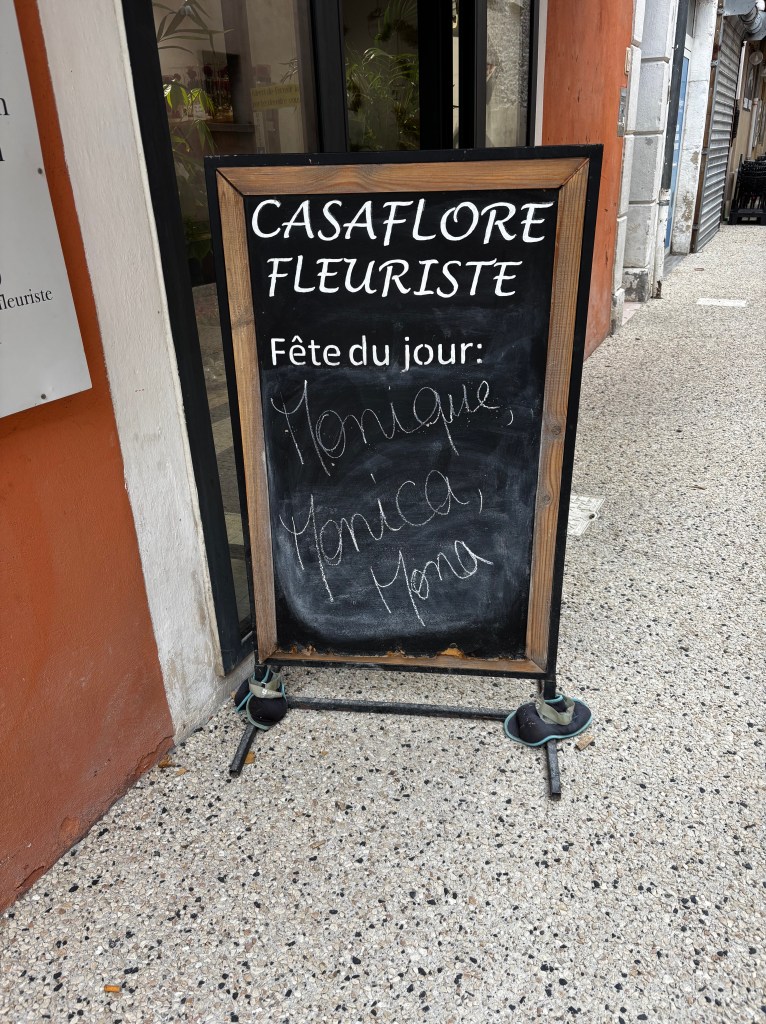 fleuriste
CASAFLORE
FLEURISTE
Fête du jour:
Monique,
Monica,
Mona